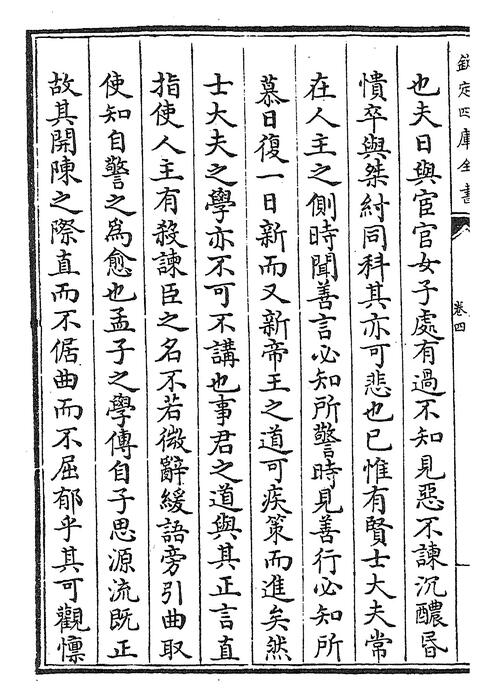 欽定四庫全書
卷四
也夫日與宦官女子處有過不知見惡不諫沉醲昬
憒卒與桀紂同科其亦可悲也已惟有賢士大夫常
在人主之側時聞善言必知所警時見善行必知所
慕日復一日新而又新帝王之道可疾策而進矣然
士大夫之學亦不可不講也事君之道與其正言直
指使人主有殺諫臣之名不若微辭緩語旁引曲取
使知自警之為愈也孟子之學傳自子思源流既正
故其開陳之際直而不倨曲而不屈郁乎其可觀懍